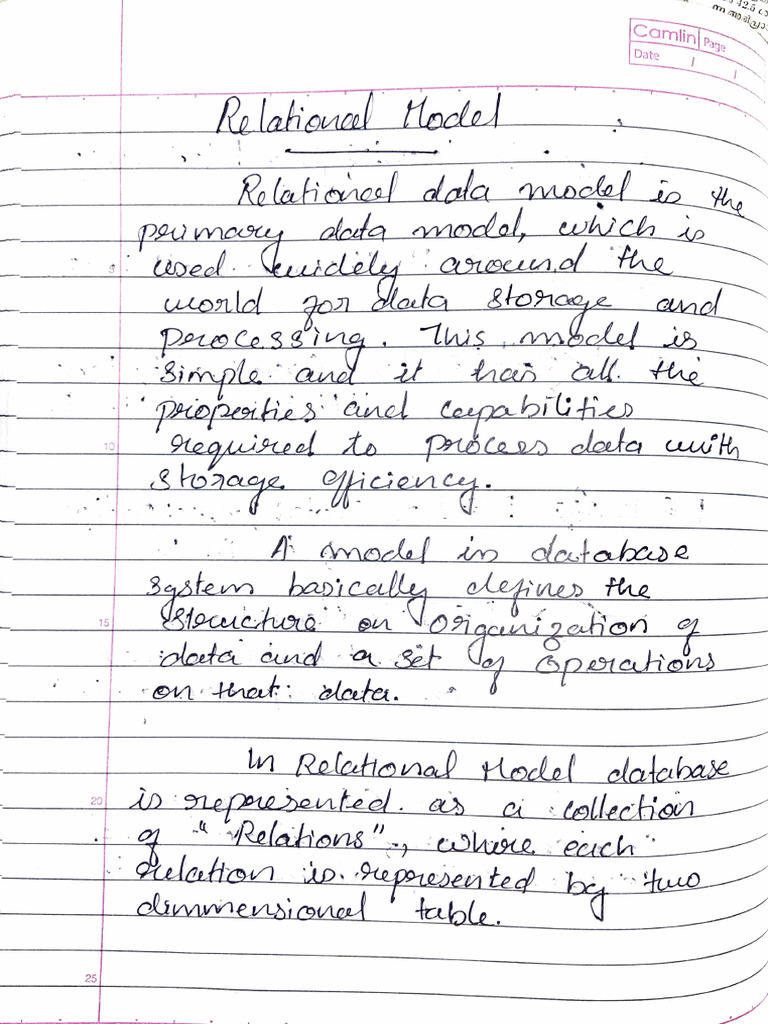 42.5
Camlin Page
Date / /
Relational Model
Relational data model is the
primary data model, which is
used widely around the
world for data storage and
processing. This model is
simple and it has all the
properties and capabilities
10 required to process data with
storage efficiency.
A model in database
system basically defines the
15 structure or organization of
data and a set of operations
on that data.
In Relational Model database
20 is represented as a collection
of "Relations", where each
relation is represented by two
dimmensional table.
25